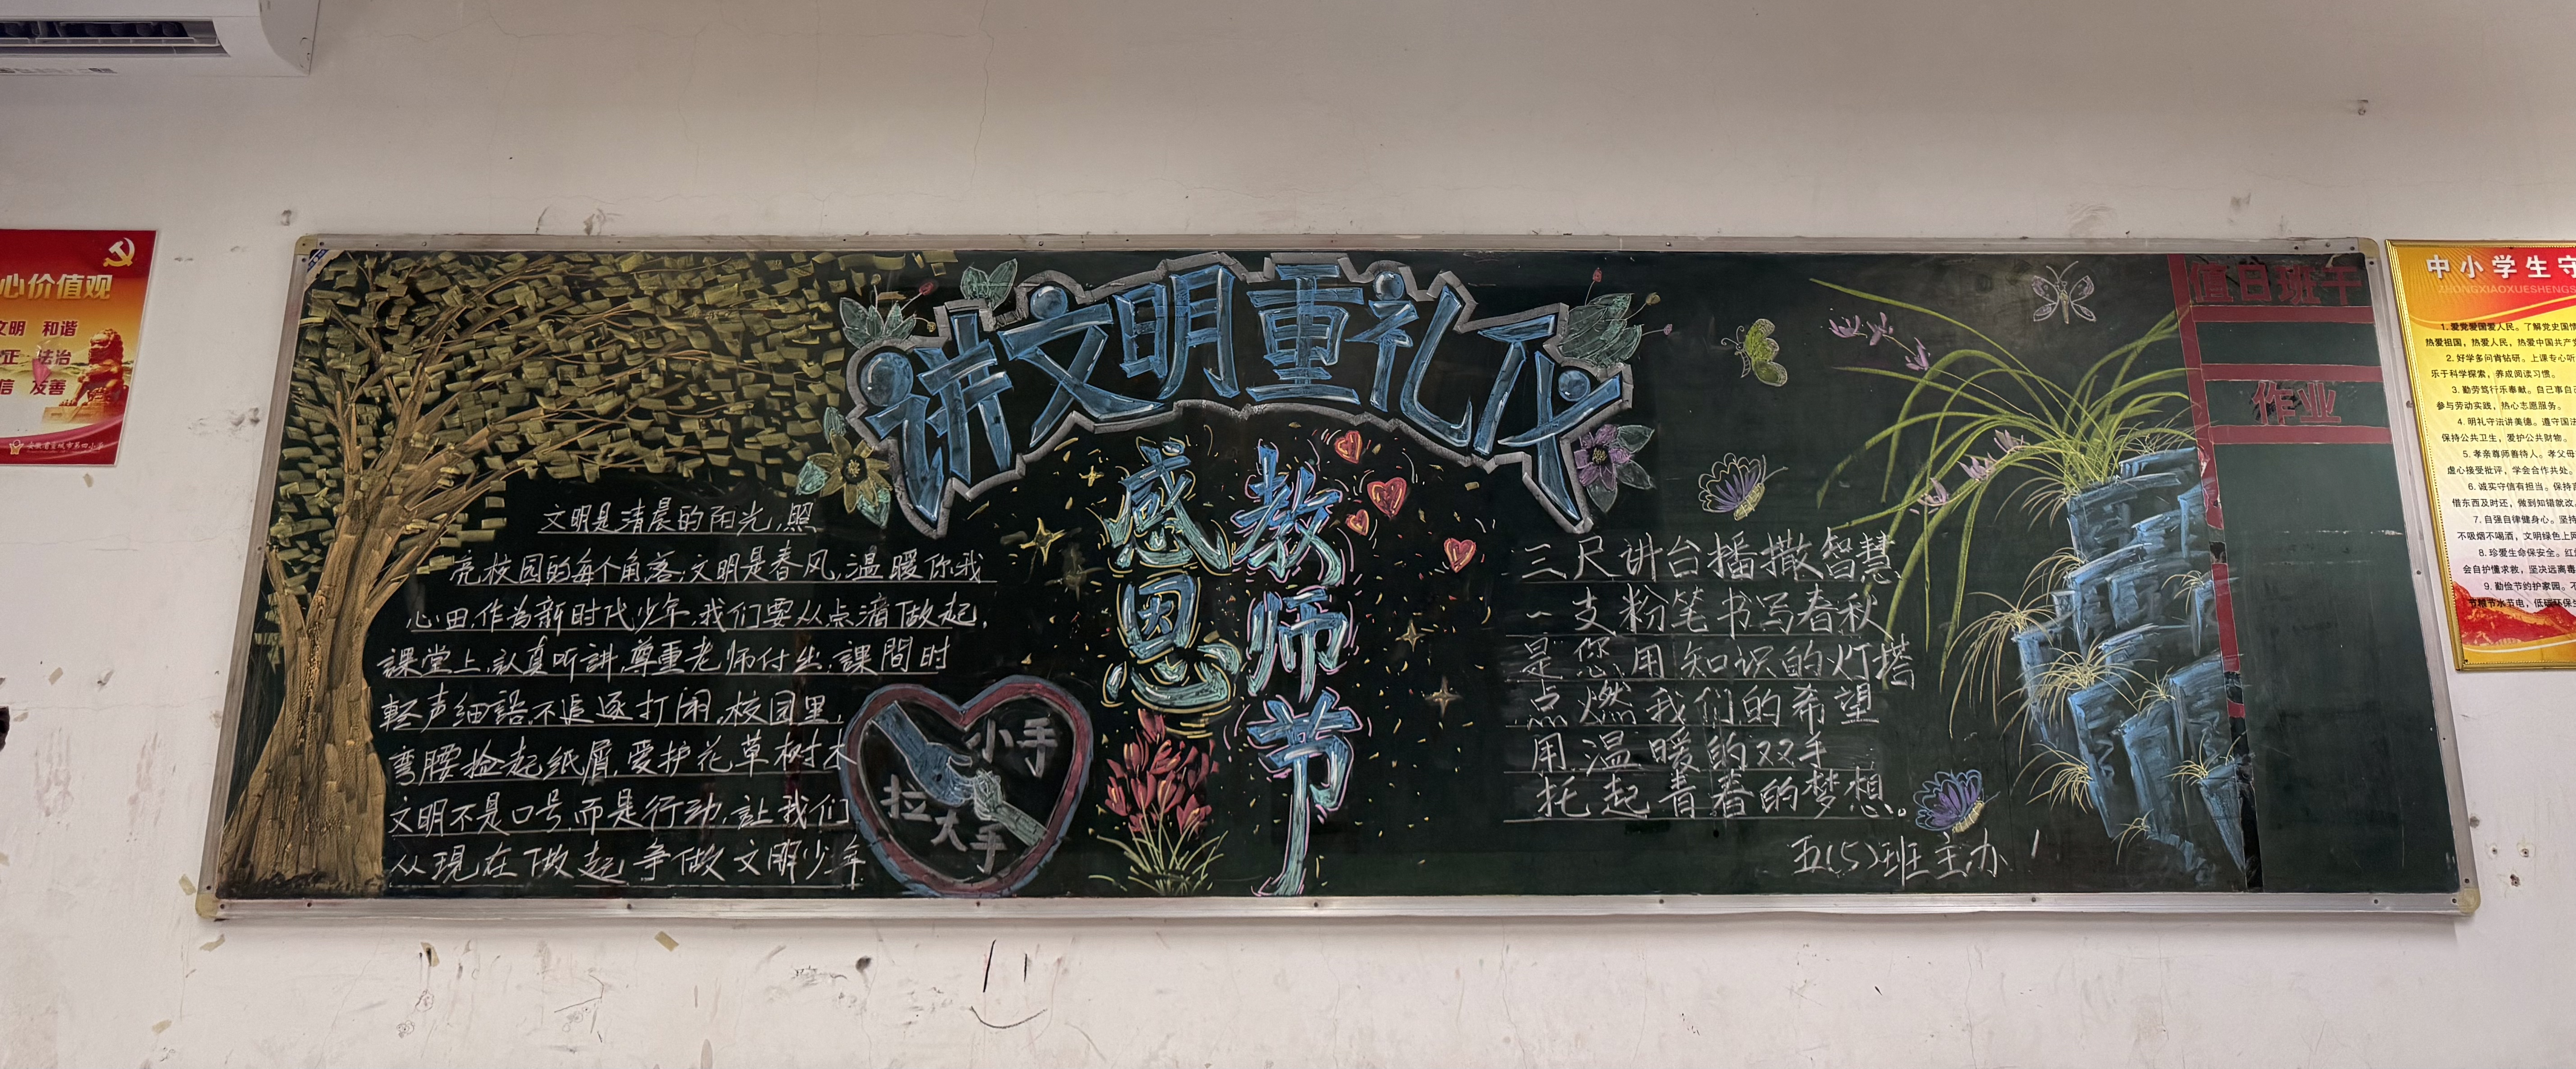 心价值观
文明 和谐
正 法治
信 友善
安徽省宣城市第四小学
讲文明重礼仪
感恩
教师节
文明是清晨的阳光,照
亮校园的每个角落,文明是春风,温暖你我
心田,作为新时代少年,我们要从点滴做起,
課堂上,認真听讲,尊重老师付出,課間时
輕声细語,不追逐打闹,校园里,
弯腰捡起纸屑,爱护花草树木
文明不是口号,而是行动,让我们
从现在做起争做文明少年
小手
拉大手
三尺讲台播撒智慧
一支粉笔书写春秋
是您用知识的灯塔
点燃我们的希望
用温暖的双手
托起青春的梦想。
五(5)班主办
值日班干
作业
中小学生守
ZHONGXIAOXUESHENGS
1.爱党爱国爱人民。了解党史国情
热爱祖国,热爱人民,热爱中国共产党
2.好学多问肯钻研。上课专心听
乐于科学探索,养成阅读习惯。
3.勤劳笃行乐奉献。自己事自己
参与劳动实践,热心志愿服务。
4.明礼守法讲美德。遵守国法
保持公共卫生,爱护公共财物。
5.孝亲尊师善待人。孝父母
虚心接受批评,学会合作共处。
6.诚实守信有担当。保持言
借东西及时还,做到知错就改。
7.自强自律健身心。坚持
不吸烟不喝酒,文明绿色上网
8.珍爱生命保安全。红
会自护懂求救,坚决远离毒
9.勤俭节约护家园。不
节粮节水节电,低碳环保生